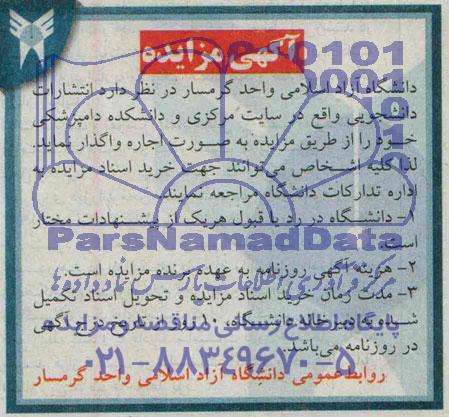 آگهی مزایده
دانشگاه آزاد اسلامی واحد گرمسار در نظر دارد انتشارات
دانشجویی واقع در سایت مرکزی و دانشکده دامپزشکی
خود را از طریق مزایده به صورت اجاره واگذار نماید.
لذا کلیه اشخاص می‌توانند جهت خرید اسناد مزایده به
اداره تدارکات دانشگاه مراجعه نمایند.
۱- دانشگاه در رد یا قبول هریک از پیشنهادات مختار
است.
ParsNamadData
۲- هزینه آگهی روزنامه به عهده برنده مزایده است.
۳- مدت زمان خرید اسناد مزایده و تحویل اسناد تکمیل
شده به دبیرخانه دانشگاه، ۱۰ روز از تاریخ درج آگهی
در روزنامه می‌باشد.
۰۲۱-۸۸۳۴۹۶۷۰-۵
روابط عمومی دانشگاه آزاد اسلامی واحد گرمسار